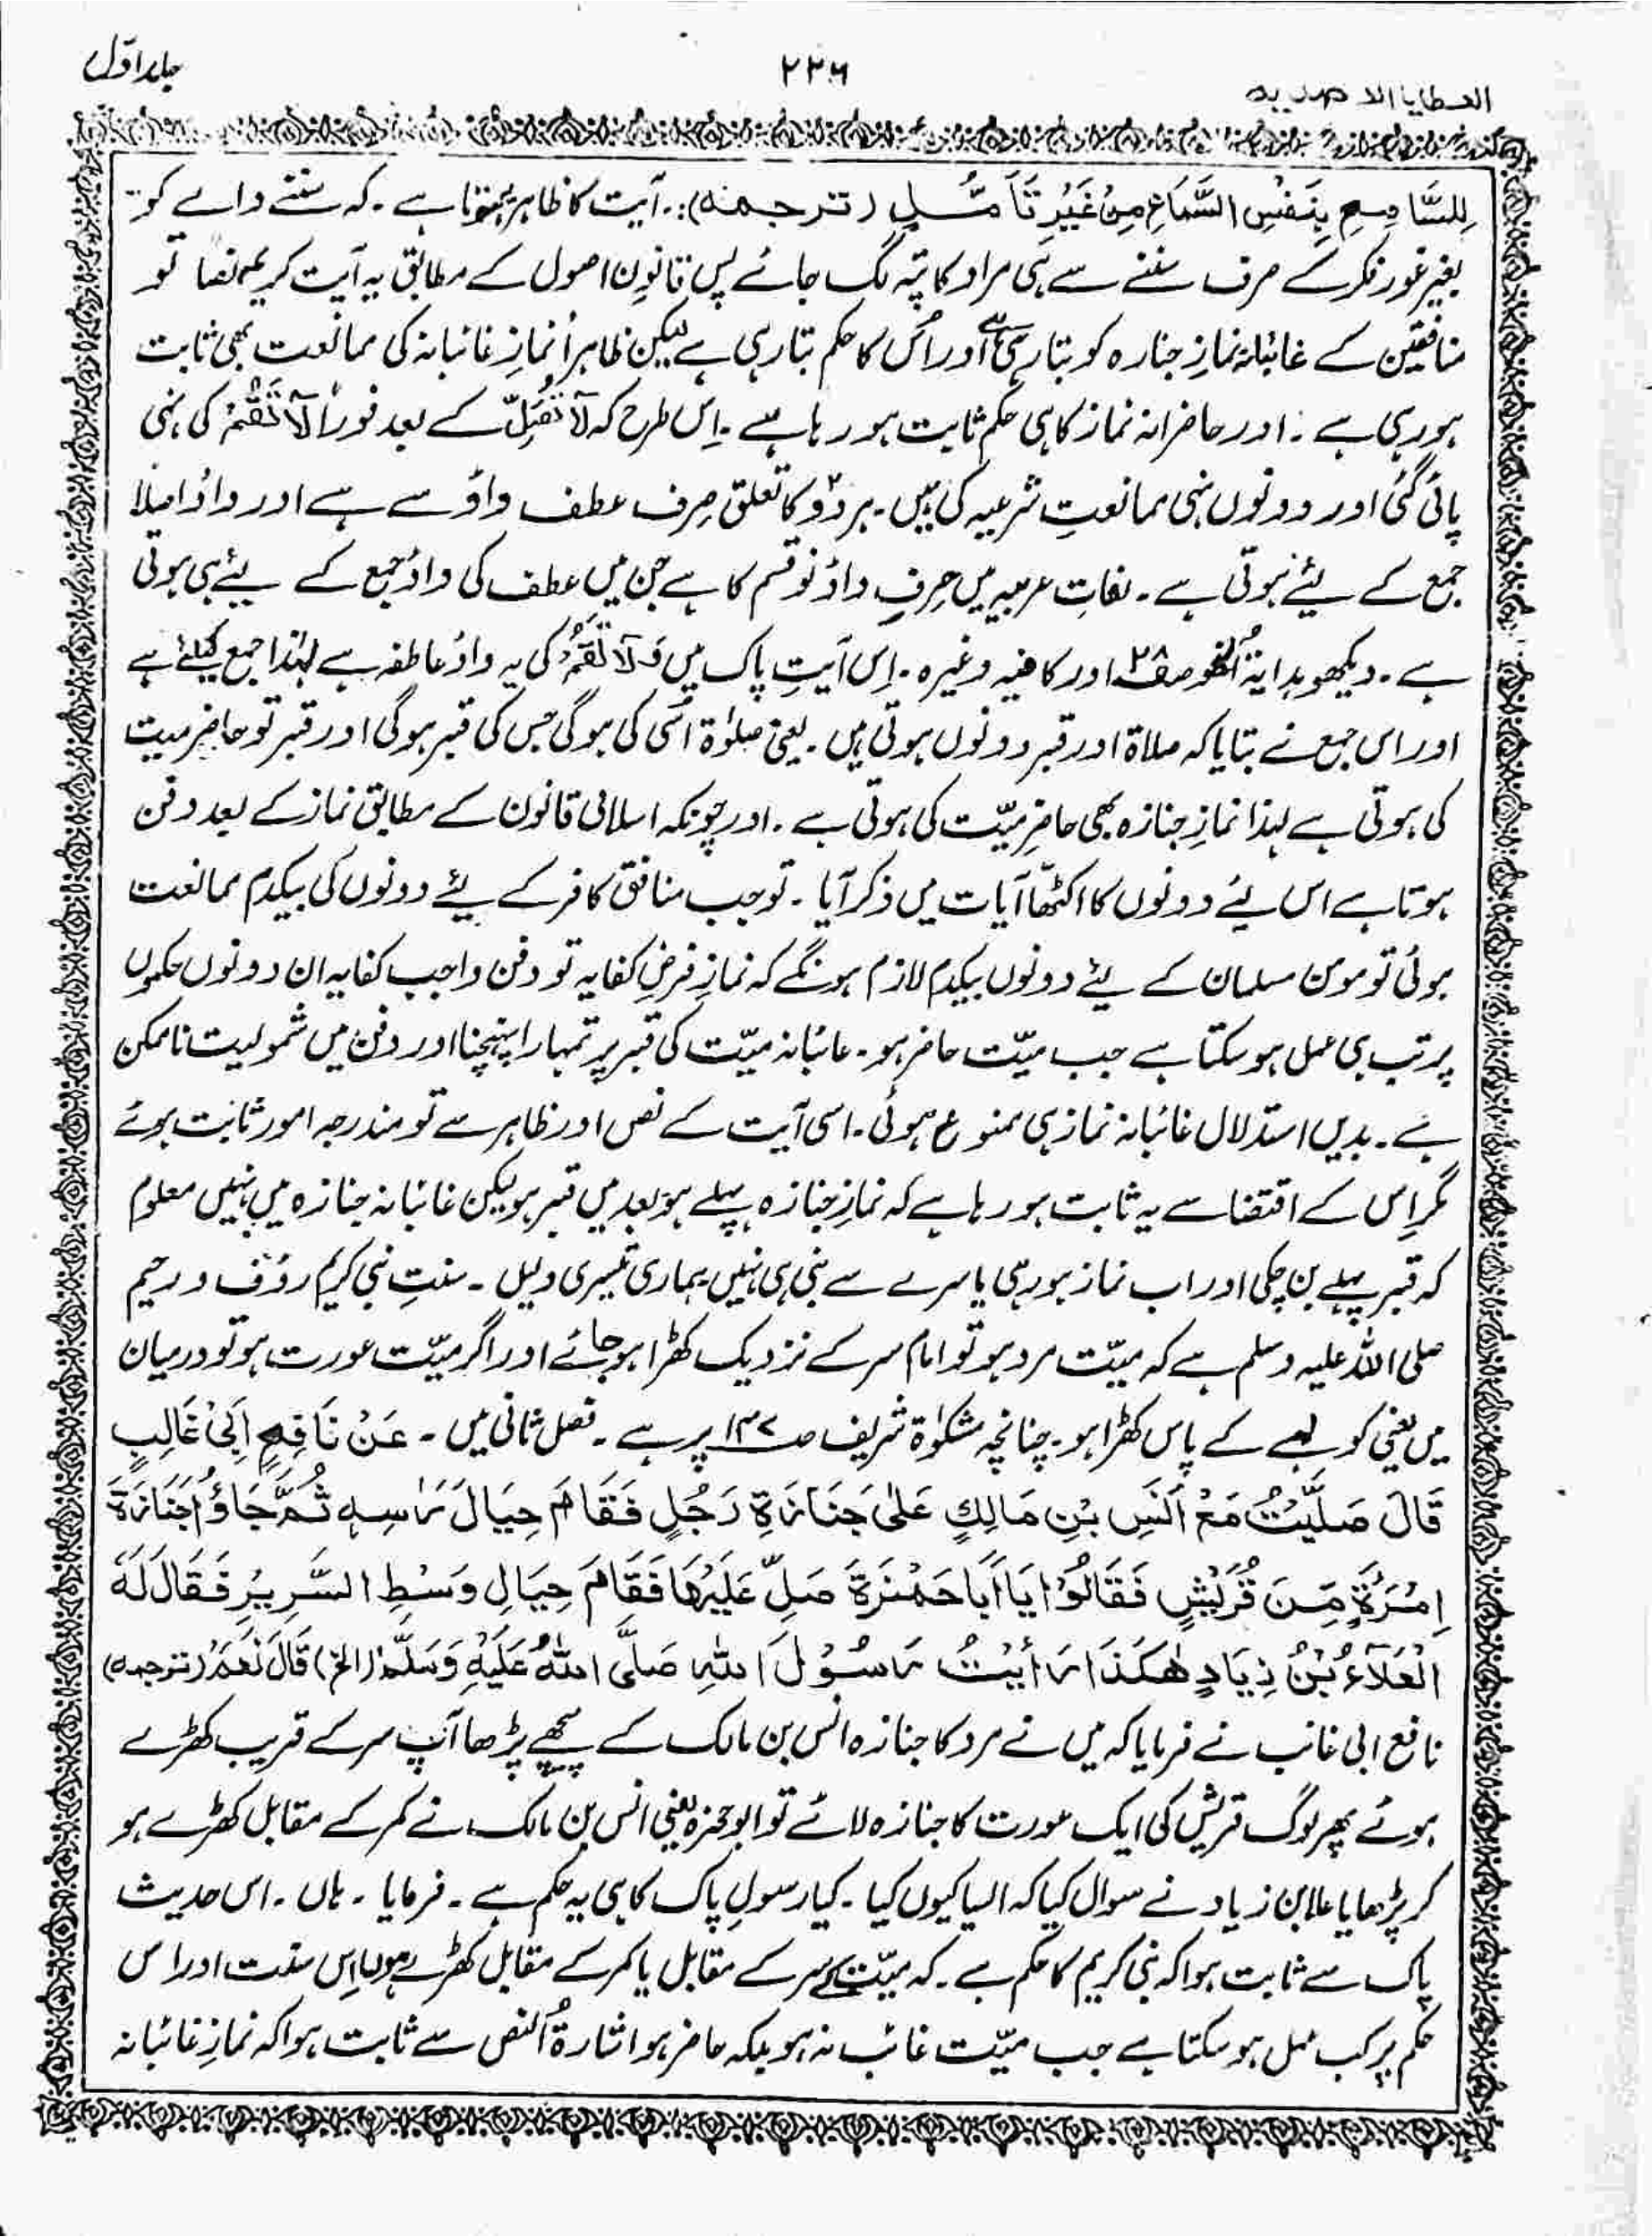 العطایا الاحمدیہ
۲۲۶
جلد اوّل
لِلسَّامِعِ بِنَفْسِ السَّمَاعِ مِنْ غَيْرِ تَأَمُّلٍ (ترجمہ):۔ آیت کا ظاہر یہ ہوتا ہے۔ کہ سننے والے کو
بغیر غور فکر کے صرف سننے سے ہی مراد کا پتہ لگ جائے پس قانونِ اصول کے مطابق یہ آیت کریمہ نصاً تو
منافقین کے غائبانہ نمازِ جنازہ کو بتا رہی ہے اور اُس کا حکم بتا رہی ہے لیکن ظاہراً نمازِ غائبانہ کی ممانعت بھی ثابت
ہو رہی ہے۔ اور حاضرانہ نماز کا ہی حکم ثابت ہو رہا ہے۔ اِس طرح کہ لَا تُصَلِّ کے بعد فوراً لَا تَقُمْ کی نہی
پائی گئی اور دونوں نہی ممانعتِ شرعیہ کی ہیں۔ ہر دو کا تعلق صِرف عطف واؤ سے ہے اور واؤ اصلاً
جمع کے لئے ہوتی ہے۔ لغاتِ عربیہ میں حرفِ واؤ نو قسم کا ہے جن میں عطف کی واؤ جمع کے لیئے ہی ہوتی
ہے۔ دیکھو ہدایۃُ النحو صفحہ ۲۸ اور کافیہ وغیرہ۔ اِس آیتِ پاک میں وَلَا تَقُمْ کی یہ واؤ عاطفہ ہے لہٰذا جمع کیلئے ہے
اور اس جمع نے بتایا کہ صلاۃ اور قبر دونوں ہوتی ہیں۔ یعنی صلوٰۃ اُسی کی ہوگی جس کی قبر ہوگی اور قبر تو حاضر میت
کی ہوتی ہے لہذا نمازِ جنازہ بھی حاضرِ میّت کی ہوتی ہے۔ اور چونکہ اسلامی قانون کے مطابق نماز کے بعد دفن
ہوتا ہے اس لیئے دونوں کا اکٹھّا آیات میں ذکر آیا۔ تو جب منافق کافر کے لیئے دونوں کی یکدم ممانعت
ہوئی تو مومن مسلمان کے لیئے دونوں یکدم لازم ہونگے کہ نمازِ فرضِ کفایہ تو دفن واجب کفایہ ان دونوں حکموں
پر تب ہی عمل ہو سکتا ہے جب میّت حاضر ہو۔ غائبانہ میّت کی قبر پر تمہارا پہنچنا اور دفن میں شمولیت ناممکن
ہے۔ بدیں استدلال غائبانہ نماز ہی ممنوع ہوئی۔ اسی آیت کے نص اور ظاہر سے تو مندرجہ امور ثابت ہوئے
مگر اِس کے اقتضا سے یہ ثابت ہو رہا ہے کہ نمازِ جنازہ پہلے ہو بعد میں قبر ہو لیکن غائبانہ جنازہ میں نہیں معلوم
کہ قبر پہلے بن چکی اور اب نماز ہو رہی یا سرے سے بنی ہی نہیں ہماری تیسری دلیل۔ سنتِ نبی کریم رؤف و رحیم
صلی اللہ علیہ وسلم ہے کہ میّت مرد ہو تو امام سر کے نزدیک کھڑا ہو جائے اور اگر میّت عورت ہو تو درمیان
میں یعنی کولہے کے پاس کھڑا ہو۔ چنانچہ مشکوٰۃ شریف صـ ۱۴۷ پر ہے۔ فصل ثانی میں۔ عَنْ نَافِعٍ اَبِیْ غَالِبٍ
قَالَ صَلَّيْتُ مَعْ اَنَسِ بْنِ مَالِكٍ عَلٰی جَنَازَةِ رَجُلٍ فَقَامَ حِيَالَ رَاسِهٖ ثُمَّ جَاؤُا جَنَازَةَ
اِمْرَءَةٍ مِّنَ قُرَيْشٍ فَقَالُوْا يَا اَبَا حَمْزَةَ صَلِّ عَلَيْهَا فَقَامَ حِيَالِ وَسْطِ السَّرِيرِ فَقَالَ لَهٗ
الْعَلَآءُ بْنُ زِيَادٍ هٰكَذَا رَأَيْتُ رَسُوْلَ اللهِ صَلَّى اللهُ عَلَيْهِ وَسَلَّمْ (الخ) قَالَ نَعَمْ (ترجمہ)
نافع ابی غالب نے فرمایا کہ میں نے مرد کا جنازہ انس بن مالک کے پیچھے پڑھا آپ سر کے قریب کھڑے
ہوئے پھر لوگ قریش کی ایک عورت کا جنازہ لائے تو ابو حمزہ یعنی انس بن مالک نے کمر کے مقابل کھڑے ہو
کر پڑھایا علا بن زیاد نے سوال کیا کہ ایسا کیوں کیا۔ کیا رسولِ پاک کا ہی یہ حکم ہے۔ فرمایا۔ ہاں۔ اس حدیث
پاک سے ثابت ہوا کہ نبی کریم کا حکم ہے۔ کہ میّت کے سر کے مقابل یا کمر کے مقابل کھڑے ہوں اِس سنت اور اس
حکم پر کب عمل ہو سکتا ہے جب میّت غائب نہ ہو بلکہ حاضر ہو اشارۃُ النص سے ثابت ہوا کہ نمازِ غائبانہ